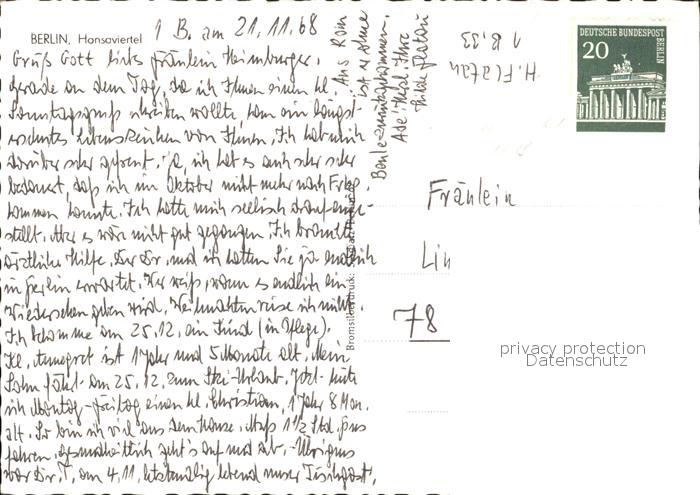 BERLIN, Hansaviertel
1 B. am 21.11.68
Grüß Gott liebs Fräulein Heimburger.
Gerade an dem Tag, da ich Ihnen einen kl.
Sonntagsgruß schreiben wollte, kam ein längst
ersehntes Lebenszeichen von Ihnen. Ich hab mich
darüber sehr gefreut. Ja, ich hab es auch sehr sehr
bedauert, daß ich im Oktober nicht mehr nach Frbg.
kommen konnte. Ich hatte mich seelisch darauf einge-
stellt. Aber es wäre nicht gut gegangen. Ich brauchte
ärztliche Hilfe. Dr. und ich hatten Sie ja endlich
in Berlin erwartet. Wer weiß, wann es endlich ein
Wiedersehen geben wird. Weihnachten reise ich nicht.
Ich bekomme am 25.12. ein Kind (in Pflege).
Kl. Annegret ist 1 Jahr und 5 Monate alt. Mein
Sohn fährt am 25.12. zum Ski-Urlaub. Jetzt hüte
ich Montag-Freitag einen kl. Christian, 1 Jahr 8 Mon.
alt. So bin ich viel aus dem Hause. Muß 1½ Std. fahren.
Gesundheitlich geht's auf und ab. Übrigens
war Dr. T. am 4.11. letztmalig lebend unser Tischgast,
Aus Rom
ist er ohne
Beule zurückgekommen.
Ade! Herzl. Ihre
H. Flatau
1 B. 33
DEUTSCHE BUNDESPOST
BERLIN
20
Fräulein
Lin
78
Bromsilberdruck:
privacy protection
Datenschutz